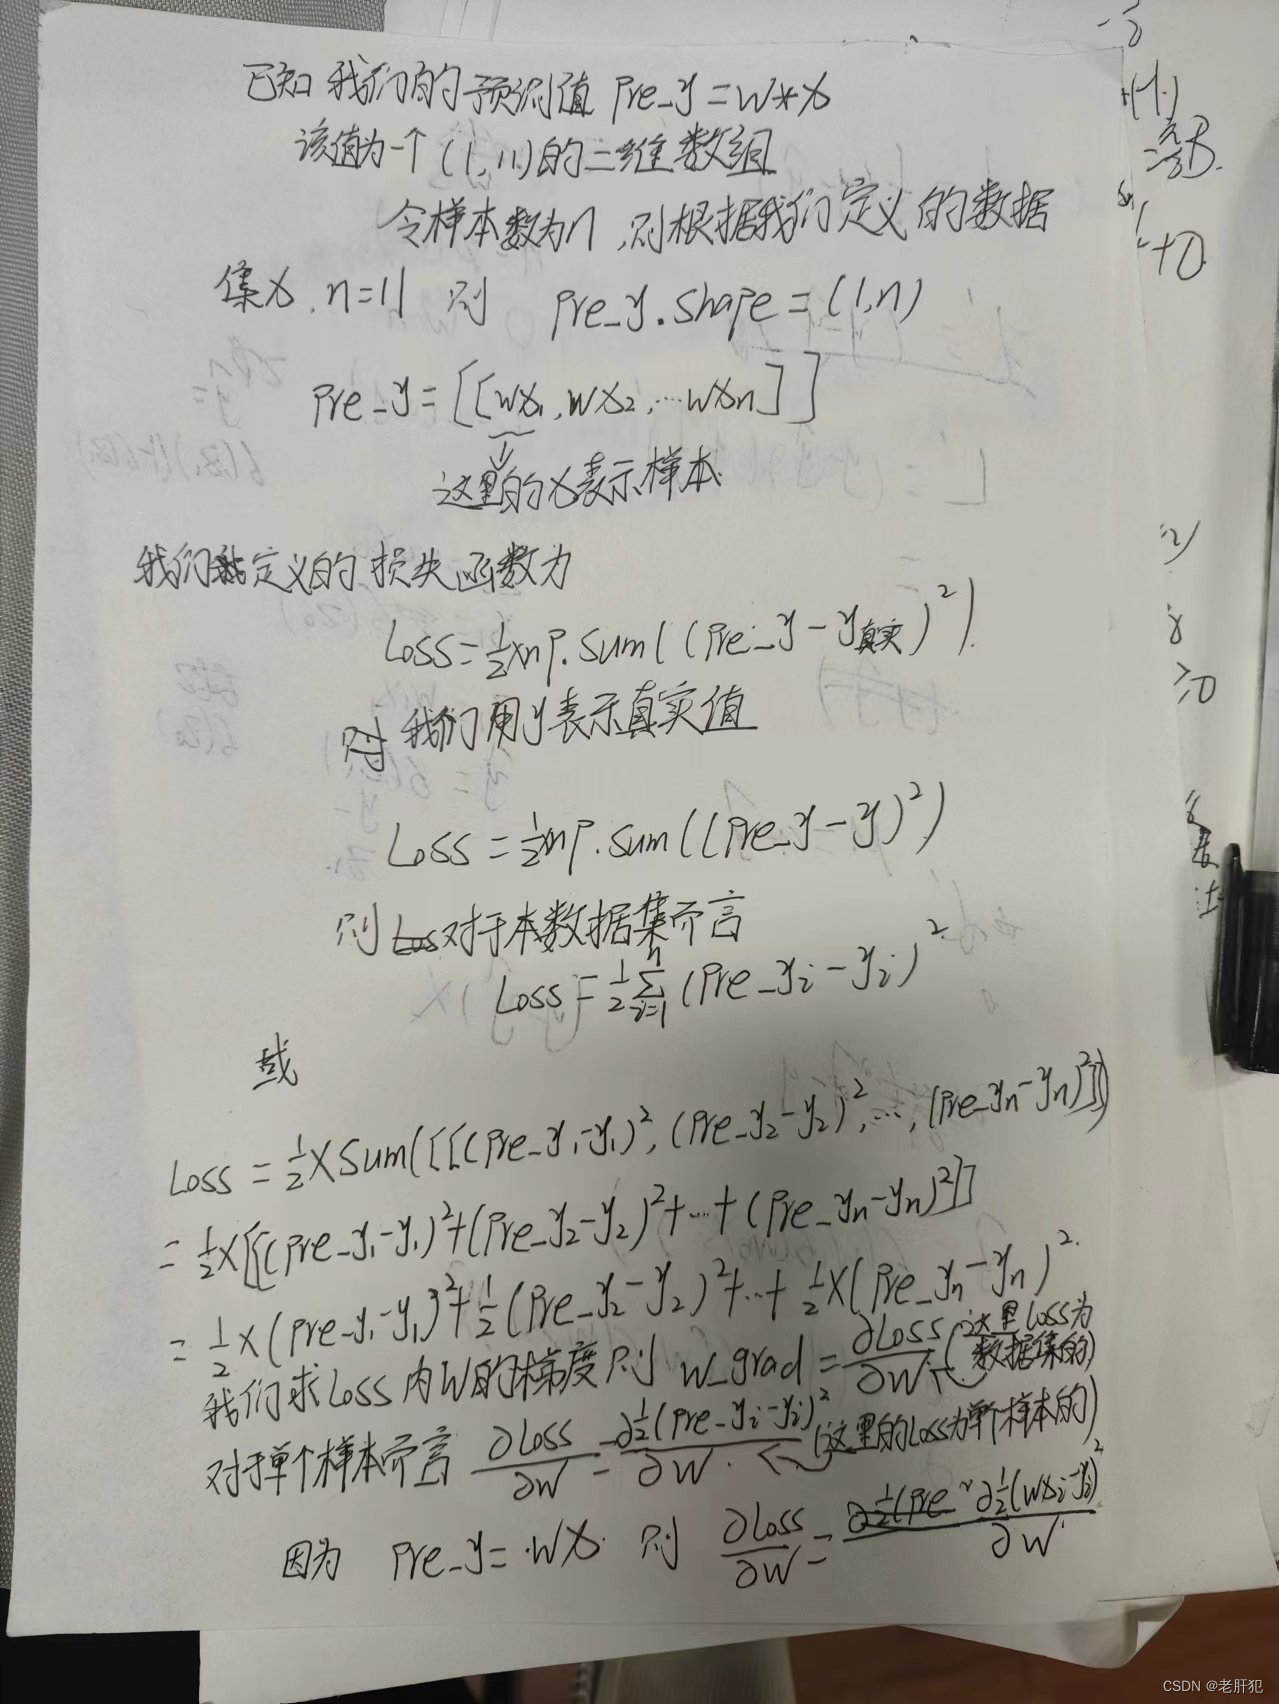 已知 我们的预测值 pre_y=w*x
该值为一个 (1,11)的二维数组
令样本数为n,则根据我们定义的数据
集x.n=11 则 pre_y.shape=(1,n)
pre_y=[[wx₁,wx₂,…wxn]]
这里的x表示样本
我们 定义的损失函数为
Loss=½xnp.sum((pre_y-y真实)²).
我们用y表示真实值
Loss=½xnp.sum((pre_y-y)²)
则 对于本数据集而言
Loss=½∑ⁿᵢ₌₁(pre_yi-yi)².
或
Loss=½×Sum([[(pre_y₁-y₁)²,(pre_y₂-y₂)²,…,(pre_yn-yn)²]])
=½×[[(pre_y₁-y₁)²+(pre_y₂-y₂)²+…+(pre_yn-yn)²]]
=½×(pre_y₁-y₁)²+½(pre_y₂-y₂)²+…+½×(pre_yn-yn)².
我们求Loss内W的梯度则 w_grad=∂Loss/∂W (这里Loss为数据集的)
对于单个样本而言 ∂Loss/∂W=∂½(pre_yi-yi)²/∂W. (这里的Loss为单个样本的)
因为 pre_y=·wx. 则 ∂Loss/∂W=∂½(wxi-yi)²/∂W.
+0
≥0
CSDN @老肝犯